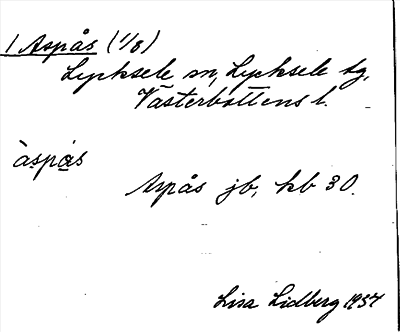 1 Aspås (1/8)
Lycksele sn, Lycksele tg,
Västerbottens l.
àspås
Aspås jb, kb 30.
Lisa Lidberg 1937